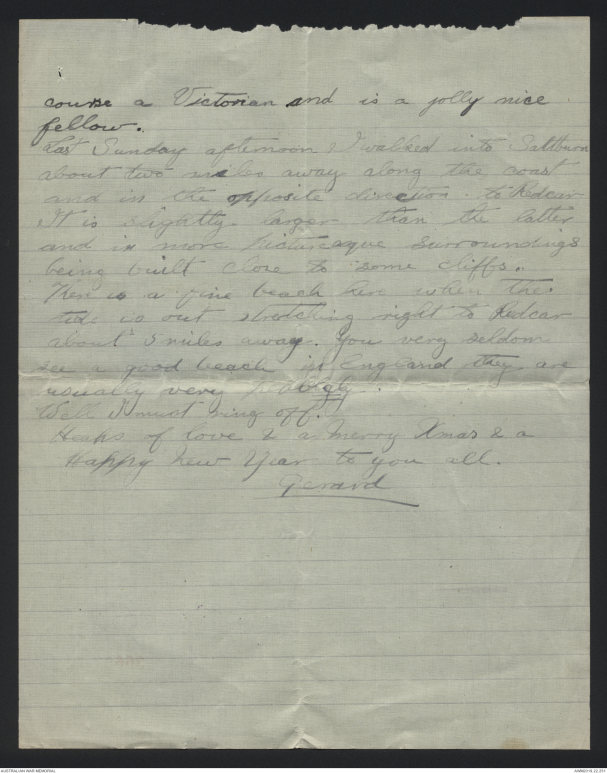 course a Victorian and is a jolly nice
fellow.
Last Sunday afternoon I walked into Saltburn
about two miles away along the coast
and in the opposite direction to Redcar
It is slightly larger than the latter
and in more picturesque surroundings
being built close to some cliffs.
There is a fine beach here when the
tide is out stretching right to Redcar
about 5 miles away. You very seldom
see a good beach in England they are
usually very
Well I must ring off.
Heaps of love & a Merry Xmas & a
Happy New Year to you all.
Gerard
AUSTRALIAN WAR MEMORIAL